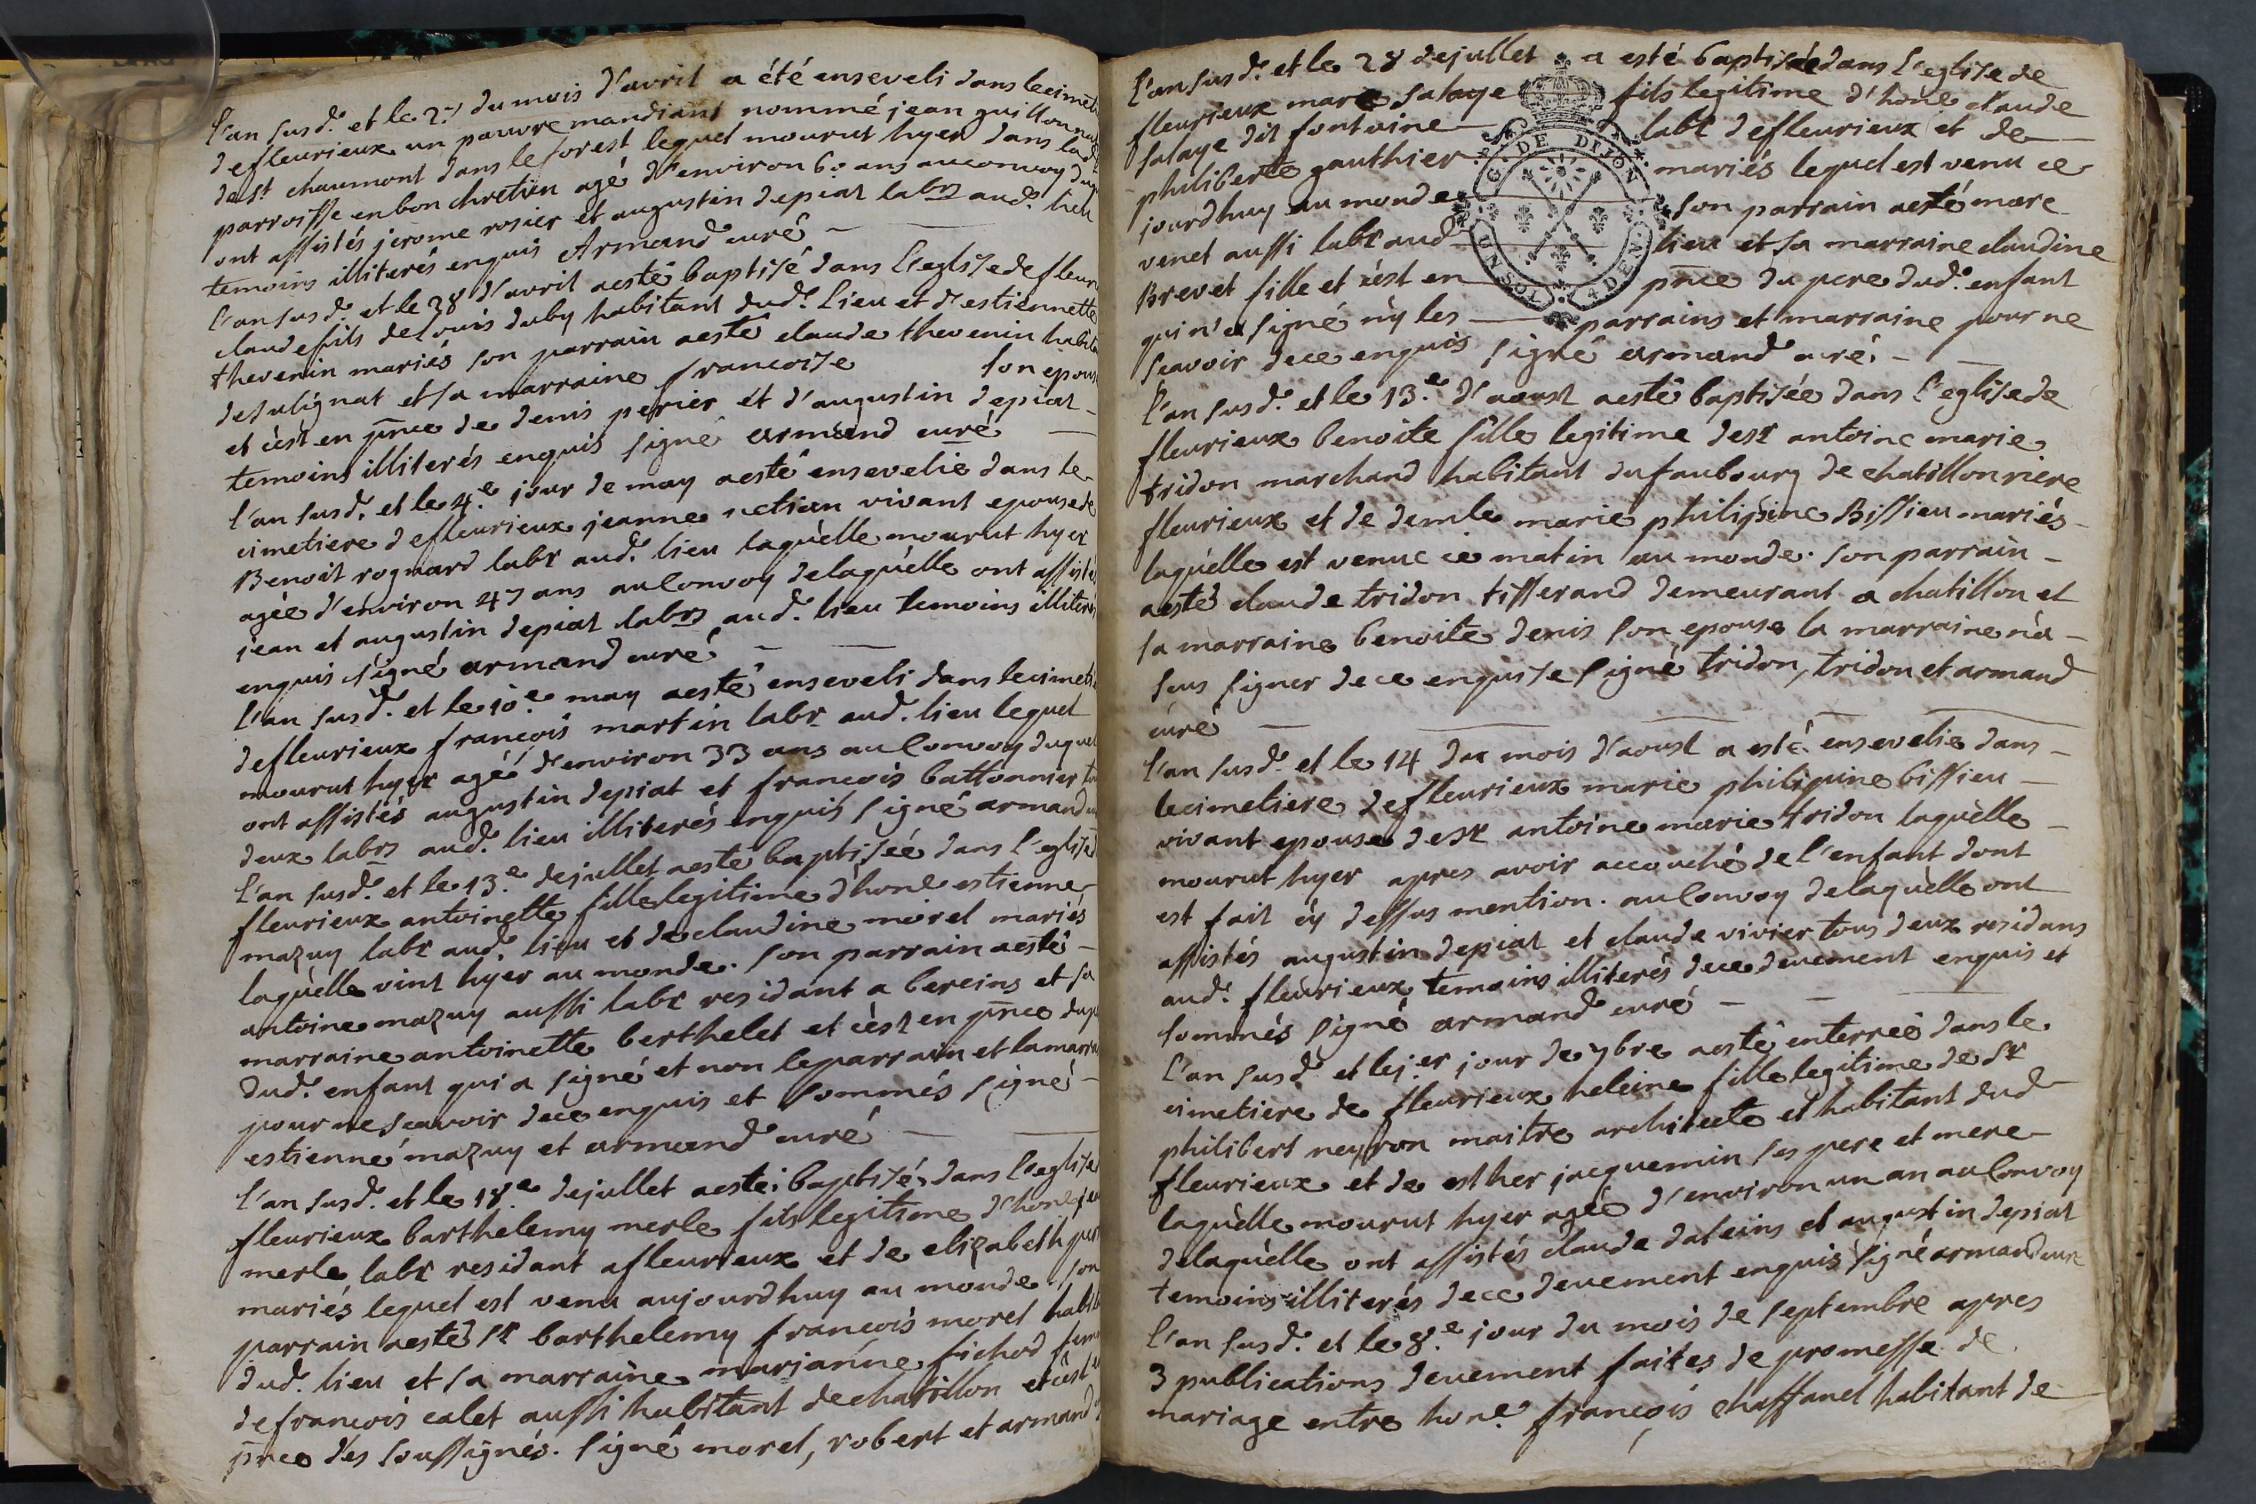 l'an susd. et le 27 du mois d'avril a été enseveli dans le cimet
de fleurieux un pauvre mandiant nommé jean guillon
de st chaumont dans le forest lequel mourut hyer dans lad
parroisse en bon chretien agé d'environ 60 ans au convoy duq
ont assistés jerome rosier et augustin depiat labrs aud. lieu
temoins illiterés enquis Armand curé
l'an susd. et le 28 d'avril a esté baptisé dans l'eglise de fleur
claude fils de louis duby habitant dud. lieu et d'estiennette
thevenin mariés son parrain a esté claude thevenin habita
de sulignat et sa marraine francoise son epous
et c'est en pnce de denis perier et d'augustin depiat
temoins illiterés enquis signé armand curé
l'an susd. et le 4.e jour de may a esté ensevelie dans le
cimetiere de fleurieux jeanne vivant epouse de
Benoit rognard labr aud. lieu laquelle mourut hyer
agée d'environ 47 ans au Convoy de laquelle ont assistés
jean et augustin depiat labrs aud. lieu temoins illiterés
enquis signé armand curé
l'an susd. et le 10.e may a esté enseveli dans le cimeti
de fleurieux francois martin labr aud. lieu lequel
mourut hyer agé d'environ 33 ans au Convoy duquel
ont assistés augustin depiat et francois battonnier
deux labrs aud. lieu illiterés enquis signé armand
l'an susd. et le 13.e de jullet a esté baptisée dans l'eglise
fleurieux antoinette fille legitime d'hone estienne
mazuy labr aud. lieu et de claudine morel mariés
laquelle vint hyer au monde. son parrain a esté
antoine mazuy aussi labr residant a bereins et sa
marraine antoinette berthelet et c'est en pnce dup
dud. enfant qui a signé et non le parrain et la marra
pour ne scavoir de ce enquis et sommés signé
estienne mazuy et armand curé
l'an susd. et le 18.e de jullet a esté baptisé dans l'eglise
fleurieux barthelemy merle fils legitime d'hone
merle labr residant a fleurieux et de elizabeth
mariés lequel est venu aujourdhuy au monde son
parrain a esté sr barthelemy francois morel habit
dud. lieu et sa marraine marianne fichod fem
de francois calet aussi habitant de chatillon et c'est
pnce des soussignés. signé morel, robert et armand
l'an susd. et le 28 de jullet a esté baptisé dans l'eglise de
fleurieux marc salaye fils legitime d'hone claude
salaye dit fontaine labr de fleurieux et de
philiberte gauthier mariés lequel est venu ce
jourdhuy au monde son parrain a esté marc
venet aussi labr aud lieu et sa marraine claudine
Brevet fille et c'est en pnce du pere dud. enfant
qui n'a signé ny les parrains et marraine pour ne
scavoir de ce enquis signé armand curé
G. DE DIJON
UN SOL. 4 DEN.
l'an susd. et le 13.e d'aoust a esté baptisée dans l'eglise de
fleurieux benoite fille legitime de sr antoine marie
tridon marchand habitant du faubourg de chatillon riere
fleurieux et de demle marie philipine Bissieu mariés
laquelle est venue ce matin au monde. son parrain
a esté claude tridon tisserand demeurant a chatillon et
sa marraine benoite denis son epouse la marraine n'a
seus signer de ce enquise signé tridon, tridon et armand
curé
l'an susd. et le 14 du mois d'aoust a esté ensevelie dans
le cimetiere de fleurieux marie philipine bissieu
vivant epouse de sr antoine marie tridon laquelle
mourut hyer apres avoir accouché de l'enfant dont
est fait cy dessus mention. au Convoy de laquelle ont
assistés augustin depiat et claude vivier tous deux residans
aud. fleurieux temoins illiterés de ce deuement enquis et
sommés signé armand curé
l'an susd. et le j.er jour de 7bre a esté enterrée dans le
cimetiere de fleurieux heleine fille legitime de sr
philibert neyron maitre architecte et habitant dud
fleurieux et de esther jacquemin ses pere et mere
laquelle mourut hyer agée d'environ un an au Convoy
de laquelle ont assistés claude dateins et augustin depiat
temoins illiterés de ce deuement enquis signé armand curé
l'an susd. et le 8.e jour du mois de septembre apres
3 publications deuement faites de promesse de
mariage entre hone. françois chaffanel habitant de